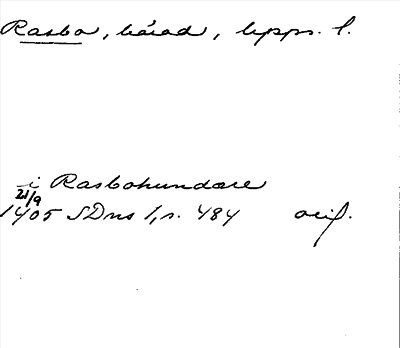 Rasbo, härad, Upps. l.
i Rasbohundare
21/9
1405 SDns 1, s. 484 orig.